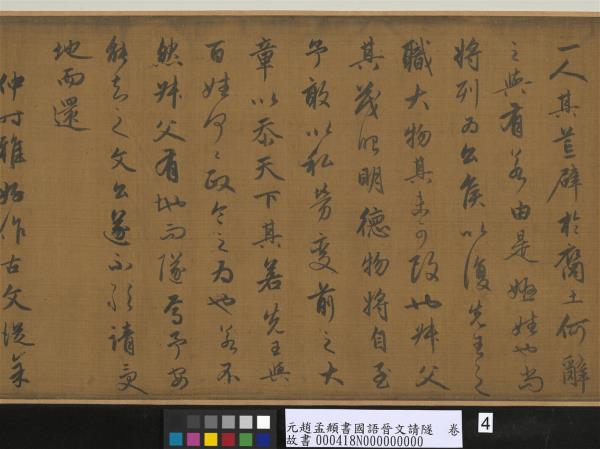 一人其辟於土何辭
之與有若由是姬姓也尚
將列為公侯以復先王之
職大物其未可改也叔父
其茂昭明德物將自至
予敢以私勞變前之大
章以忝天下其若先王與
百姓何何政令之為也若不
然叔父有地而隧焉予安
能知之文公遂不敢請受
地而還
仲時雅好作古文
元趙孟頫書國語晉文請隧 卷
故書 000418N000000000
4